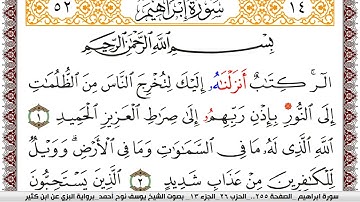 ٥٢ سُورَةُ إِبْرَاهِيمَ ١٤
بِسْمِ اللَّهِ الرَّحْمَٰنِ الرَّحِيمِ
الٓر كِتَابٌ أَنزَلْنَاهُۥ إِلَيْكَ لِتُخْرِجَ النَّاسَ مِنَ الظُّلُمَاتِ
إِلَى النُّورِ بِإِذْنِ رَبِّهِمُۥ إِلَى صِرَاطِ الْعَزِيزِ الْحَمِيدِ ١
اللَّهِ الَّذِي لَهُۥ مَا فِي السَّمَاوَاتِ وَمَا فِي الْأَرْضِ وَوَيْلٌ
لِّلْكَافِرِينَ مِنْ عَذَابٍ شَدِيدٍ ٢ الَّذِينَ يَسْتَحِبُّونَ
سورة ابراهيم الصفحة ٢٥٥.. الحزب ٢٦ الجزء ١٣ بصوت الشيخ يوسف نوح أحمد برواية البزي عن ابن كثير